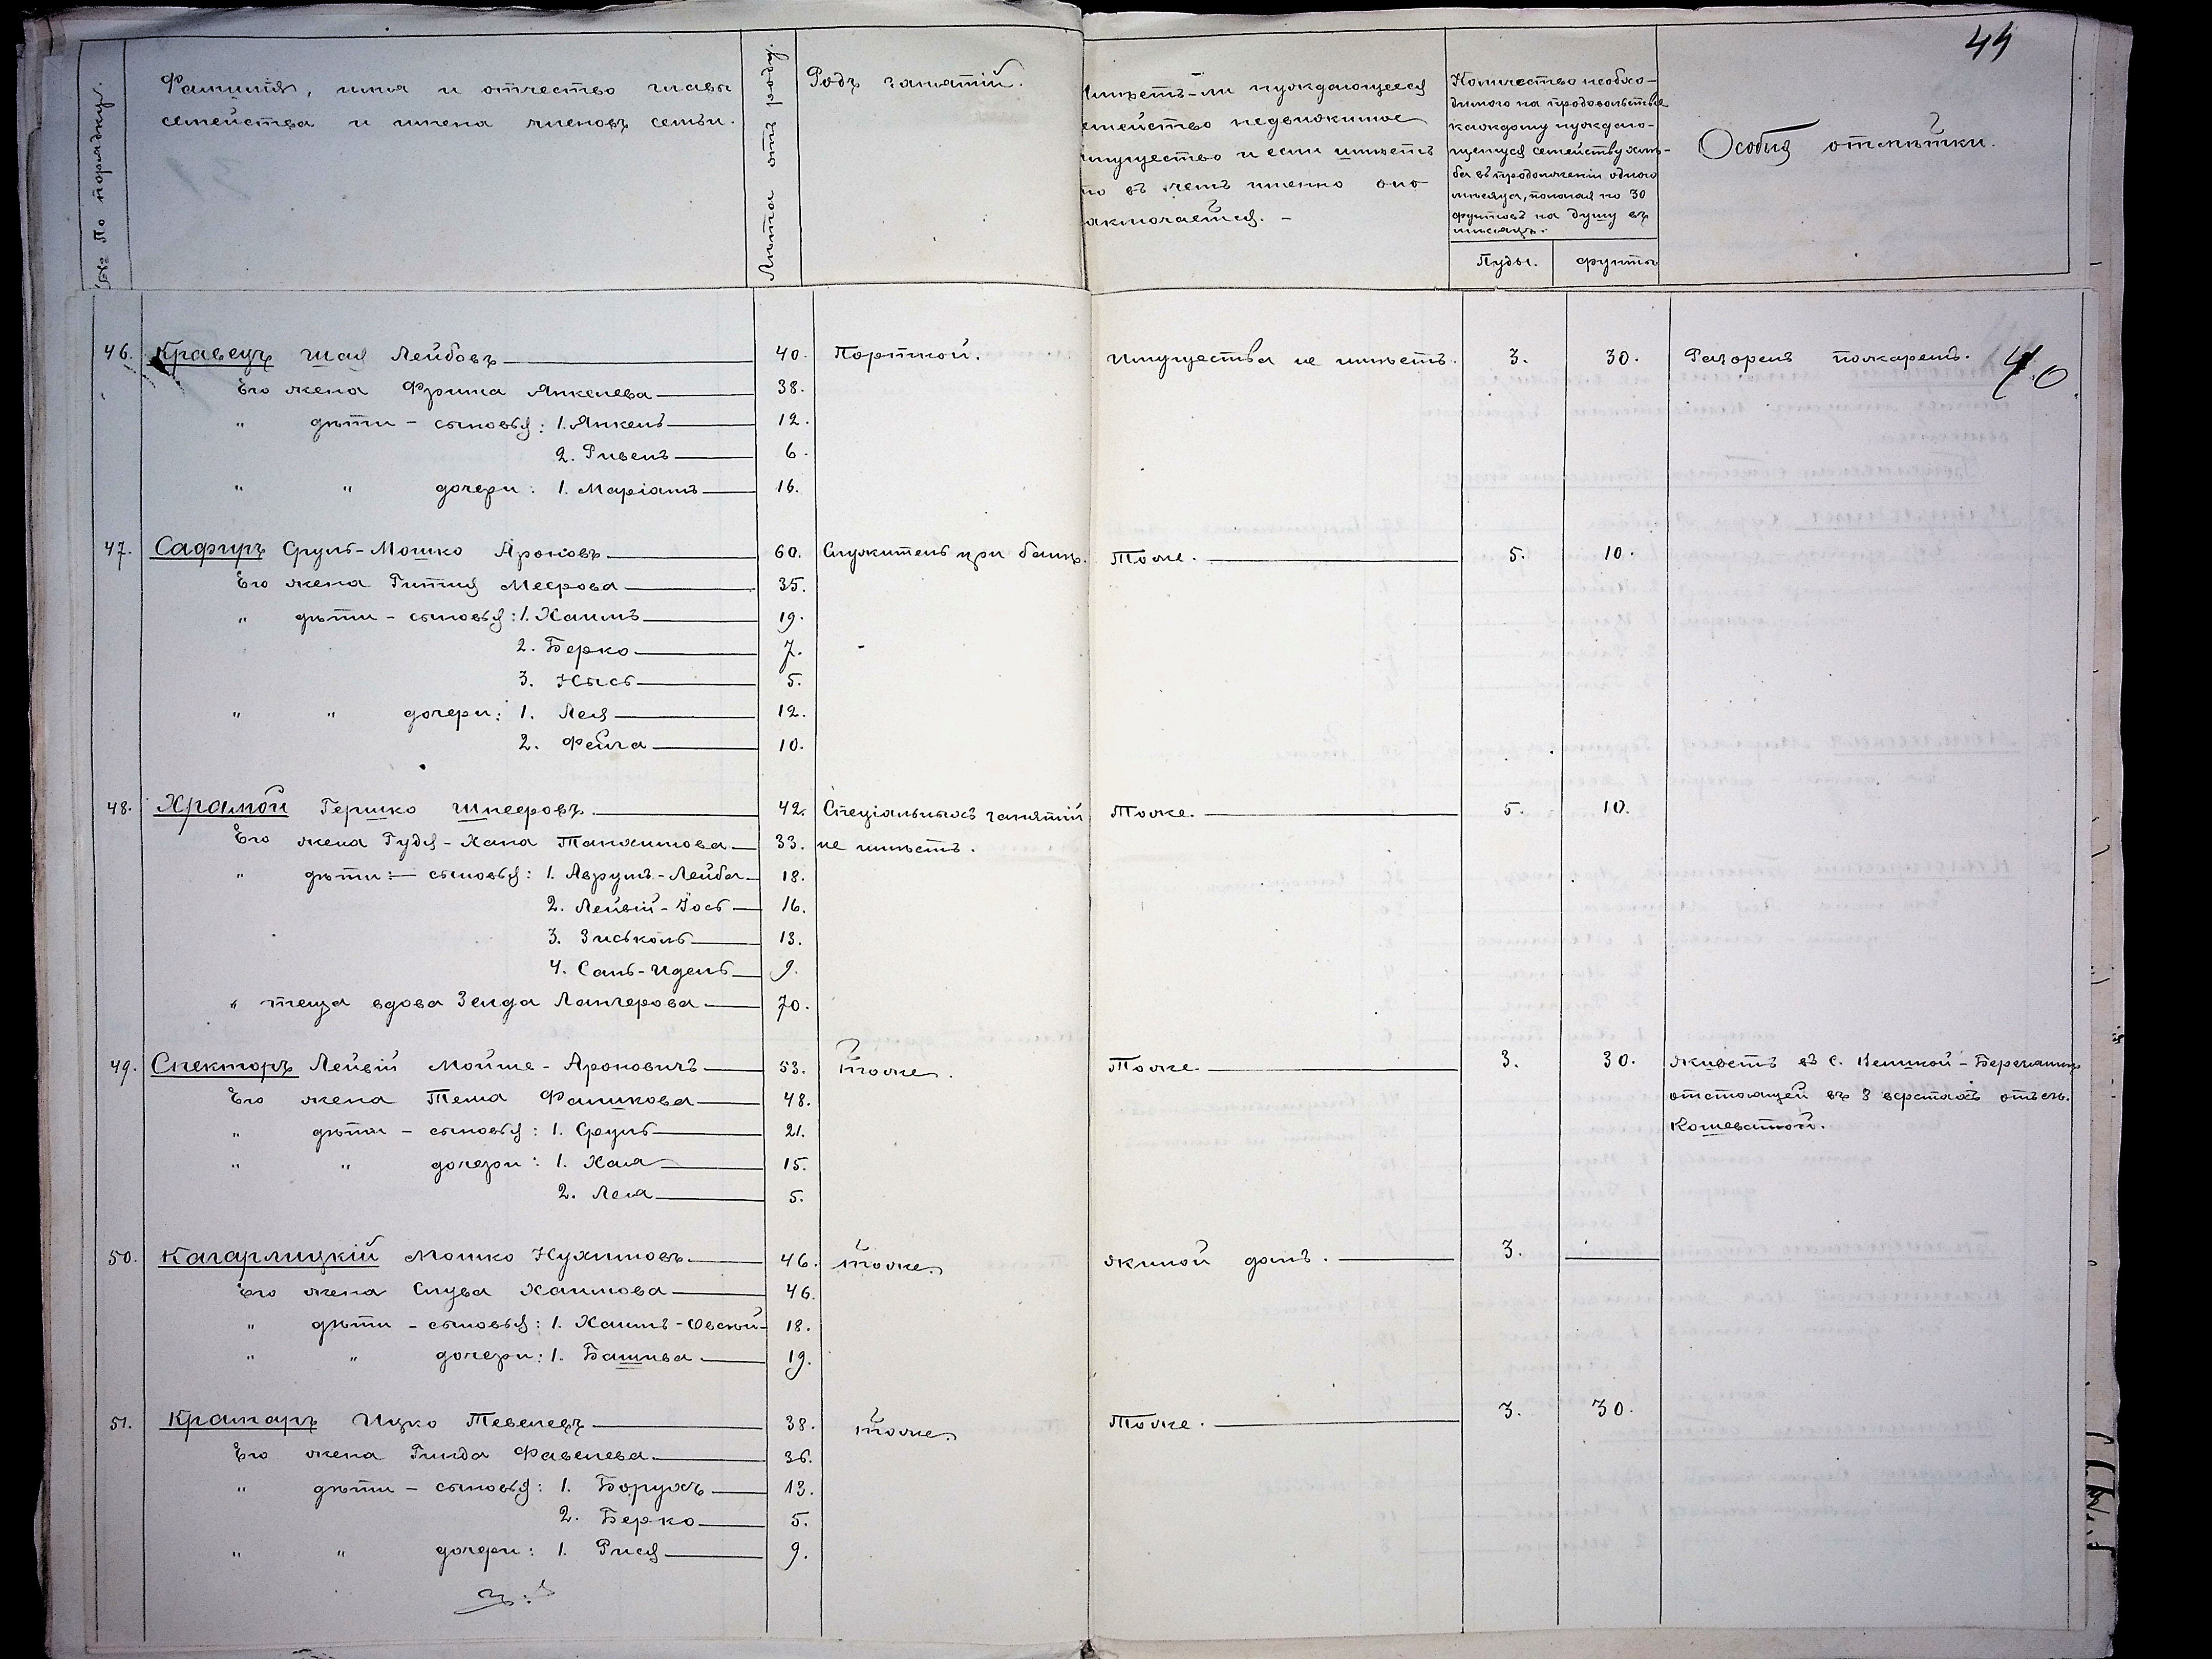 44
№№ По порядку.
Фамилія, имя и отчество главы
семейства и имена членовъ семьи.
Лѣта отъ роду.
Родъ занятій.
Имѣетъ-ли нуждающееся
семейство недвижимое
имущество и если имѣетъ
то въ чемъ именно оно
заключается. -
Количество необхо-
димаго на продовольствіе
каждому нуждаю-
щемуся семейству хлѣ-
ба въ продолженіи одного
мѣсяца, полагая по 30
фунтовъ на душу въ
мѣсяцъ.
Пуды. фунты
Особыя отмѣтки.
46. Кравецъ Шая Лейбовъ 40. Портной. Имущества не имѣетъ. 3. 30. Разоренъ пожаромъ. 40
Его жена Фрима Янкелева 38.
" дѣти - сыновья: 1. Янкель 12.
2. Ривенъ 6.
" " дочери: 1. Маріамъ 16.
47. Сафиръ Сруль-Мошко Ароновъ 60. Служитель при банѣ. Тоже. 5. 10.
Его жена Гитля Меерова 35.
" дѣти - сыновья: 1. Хаимъ 19.
2. Берко 7.
3. Нысь 5.
" " дочери: 1. Лея 12.
2. Фейга 10.
48. Храмой Гершко Шнееровъ 42. Спеціальныхъ занятій Тоже. 5. 10.
Его жена Гудя-Хана Танхимова 33. не имѣетъ.
" дѣти: - сыновья: 1. Аврумъ-Лейба 18.
2. Лейвій-Іось 16.
3. Зиськоль 13.
4. Сань-Идель 9.
" теща вдова Зелда Лангерова 70.
49. Спекторъ Лейвій Мойше-Ароновичъ 53. тоже. Тоже. 3. 30. Живетъ въ с. Великой-Березанкѣ
Его жена Тема Фаликова 48. отстоящей въ 8 верстахъ отъ с.
" дѣти - сыновья: 1. Сруль 21. Кошеватой.
" " дочери: 1. Хая 15.
2. Лея 5.
50. Кагарлицкій Мошко Нухимовъ 46. тоже. Жилой домъ. 3.
Его жена Слува Хаимова 46.
" дѣти - сыновья: 1. Хаимъ-Овсій 18.
" " дочери: 1. Башива 19.
51. Крамаръ Ицко Тевелевъ 38. тоже. Тоже. 3. 30.
Его жена Гинда Фавелева 36.
" дѣти - сыновья: 1. Борухъ 13.
2. Берко 5.
" " дочери: 1. Рися 9.